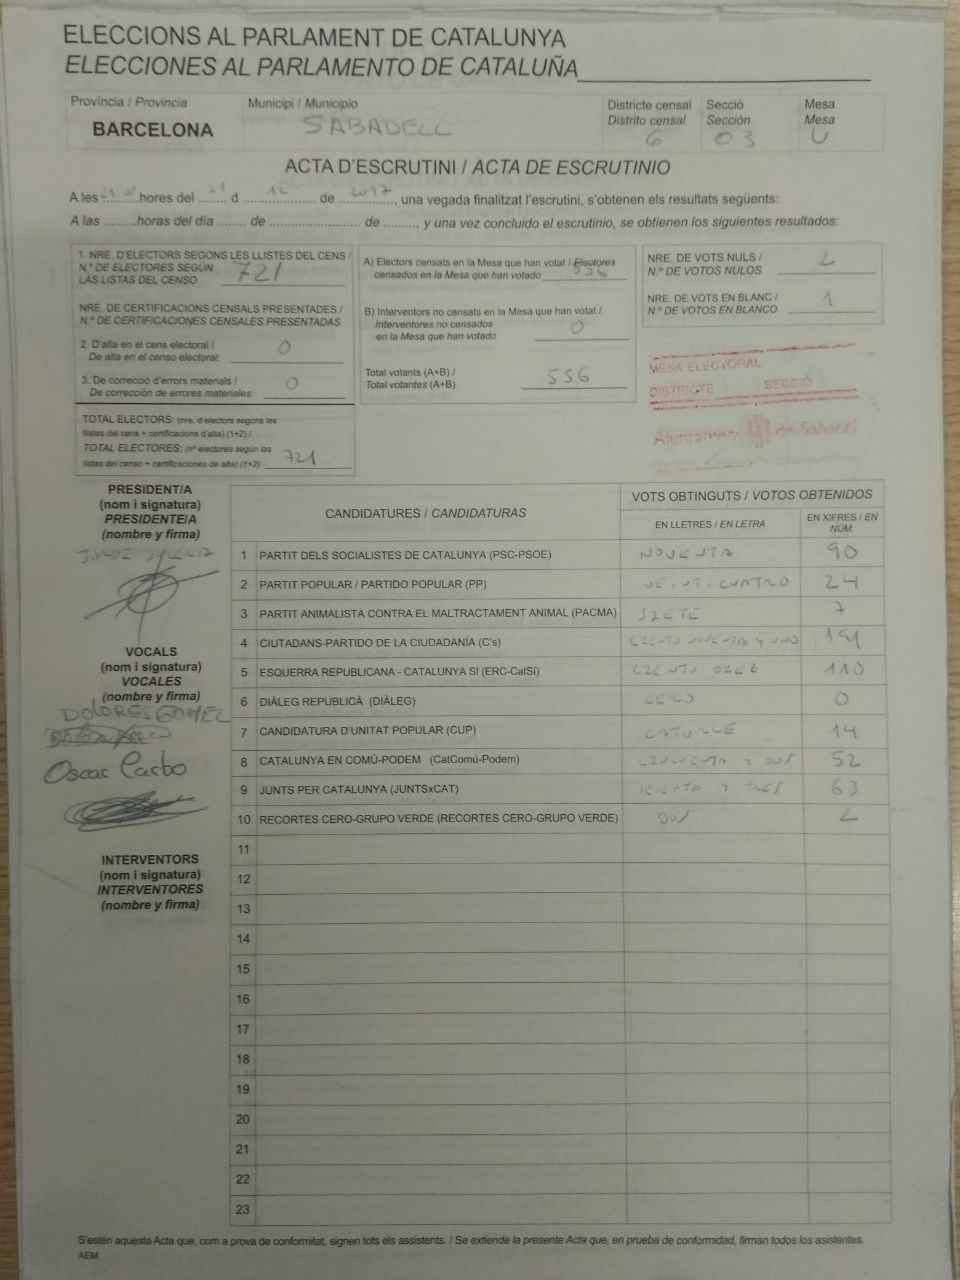 ELECCIONS AL PARLAMENT DE CATALUNYA
ELECCIONES AL PARLAMENTO DE CATALUÑA
Provincia / Provincia
BARCELONA
Municipi / Municipio
SABADELL
Districte censal
Distrito censal
6
Secció
Sección
03
Mesa
Mesa
U
ACTA D'ESCRUTINI / ACTA DE ESCRUTINIO
A les hores del 21 d 12 de 2017, una vegada finalitzat l'escrutini, s'obtenen els resultats següents:
A las horas del día de de , y una vez concluido el escrutinio, se obtienen los siguientes resultados:
1. NRE. D'ELECTORS SEGONS LES LLISTES DEL CENS /
N.º DE ELECTORES SEGÚN
LAS LISTAS DEL CENSO 721
NRE. DE CERTIFICACIONS CENSALS PRESENTADES /
N.º DE CERTIFICACIONES CENSALES PRESENTADAS
2. D'alta en el cens electoral /
De alta en el censo electoral: 0
3. De correcció d'errors materials /
De corrección de errores materiales: 0
TOTAL ELECTORS: (nre. d'electors segons les
llistes del cens + certificacions d'alta) (1+2) /
TOTAL ELECTORES: (nº electores según las
listas del censo + certificaciones de alta) (1+2) 721
A) Electors censats en la Mesa que han votat / Electores
censados en la Mesa que han votado 556
B) Interventors no censats en la Mesa que han votat /
Interventores no censados
en la Mesa que han votado 0
Total votants (A+B) /
Total votantes (A+B) 556
NRE. DE VOTS NULS /
N.º DE VOTOS NULOS 2
NRE. DE VOTS EN BLANC /
N.º DE VOTOS EN BLANCO 1
MESA ELECTORAL
DISTRICTE SECCIÓ
Ajuntament de Sabadell
PRESIDENT/A
(nom i signatura)
PRESIDENTE/A
(nombre y firma)
VOCALS
(nom i signatura)
VOCALES
(nombre y firma)
DOLORES GOMEZ
Oscar Carbo
INTERVENTORS
(nom i signatura)
INTERVENTORES
(nombre y firma)
CANDIDATURES / CANDIDATURAS
VOTS OBTINGUTS / VOTOS OBTENIDOS
EN LLETRES / EN LETRA
EN XIFRES / EN NÚM.
1 PARTIT DELS SOCIALISTES DE CATALUNYA (PSC-PSOE) NOVENTA 90
2 PARTIT POPULAR / PARTIDO POPULAR (PP) VEINTICUATRO 24
3 PARTIT ANIMALISTA CONTRA EL MALTRACTAMENT ANIMAL (PACMA) SIETE 7
4 CIUTADANS-PARTIDO DE LA CIUDADANÍA (C's) CIENTO NOVENTA Y UNO 191
5 ESQUERRA REPUBLICANA - CATALUNYA SI (ERC-CatSí) CIENTO DIEZ 110
6 DIÀLEG REPUBLICÀ (DIÀLEG) CERO 0
7 CANDIDATURA D'UNITAT POPULAR (CUP) CATORCE 14
8 CATALUNYA EN COMÚ-PODEM (CatComú-Podem) CINCUENTA Y DOS 52
9 JUNTS PER CATALUNYA (JUNTSxCAT) SESENTA Y TRES 63
10 RECORTES CERO-GRUPO VERDE (RECORTES CERO-GRUPO VERDE) DOS 2
11
12
13
14
15
16
17
18
19
20
21
22
23
S'estén aquesta Acta que, com a prova de conformitat, signen tots els assistents. / Se extiende la presente Acta que, en prueba de conformidad, firman todos los asistentes.
AEM